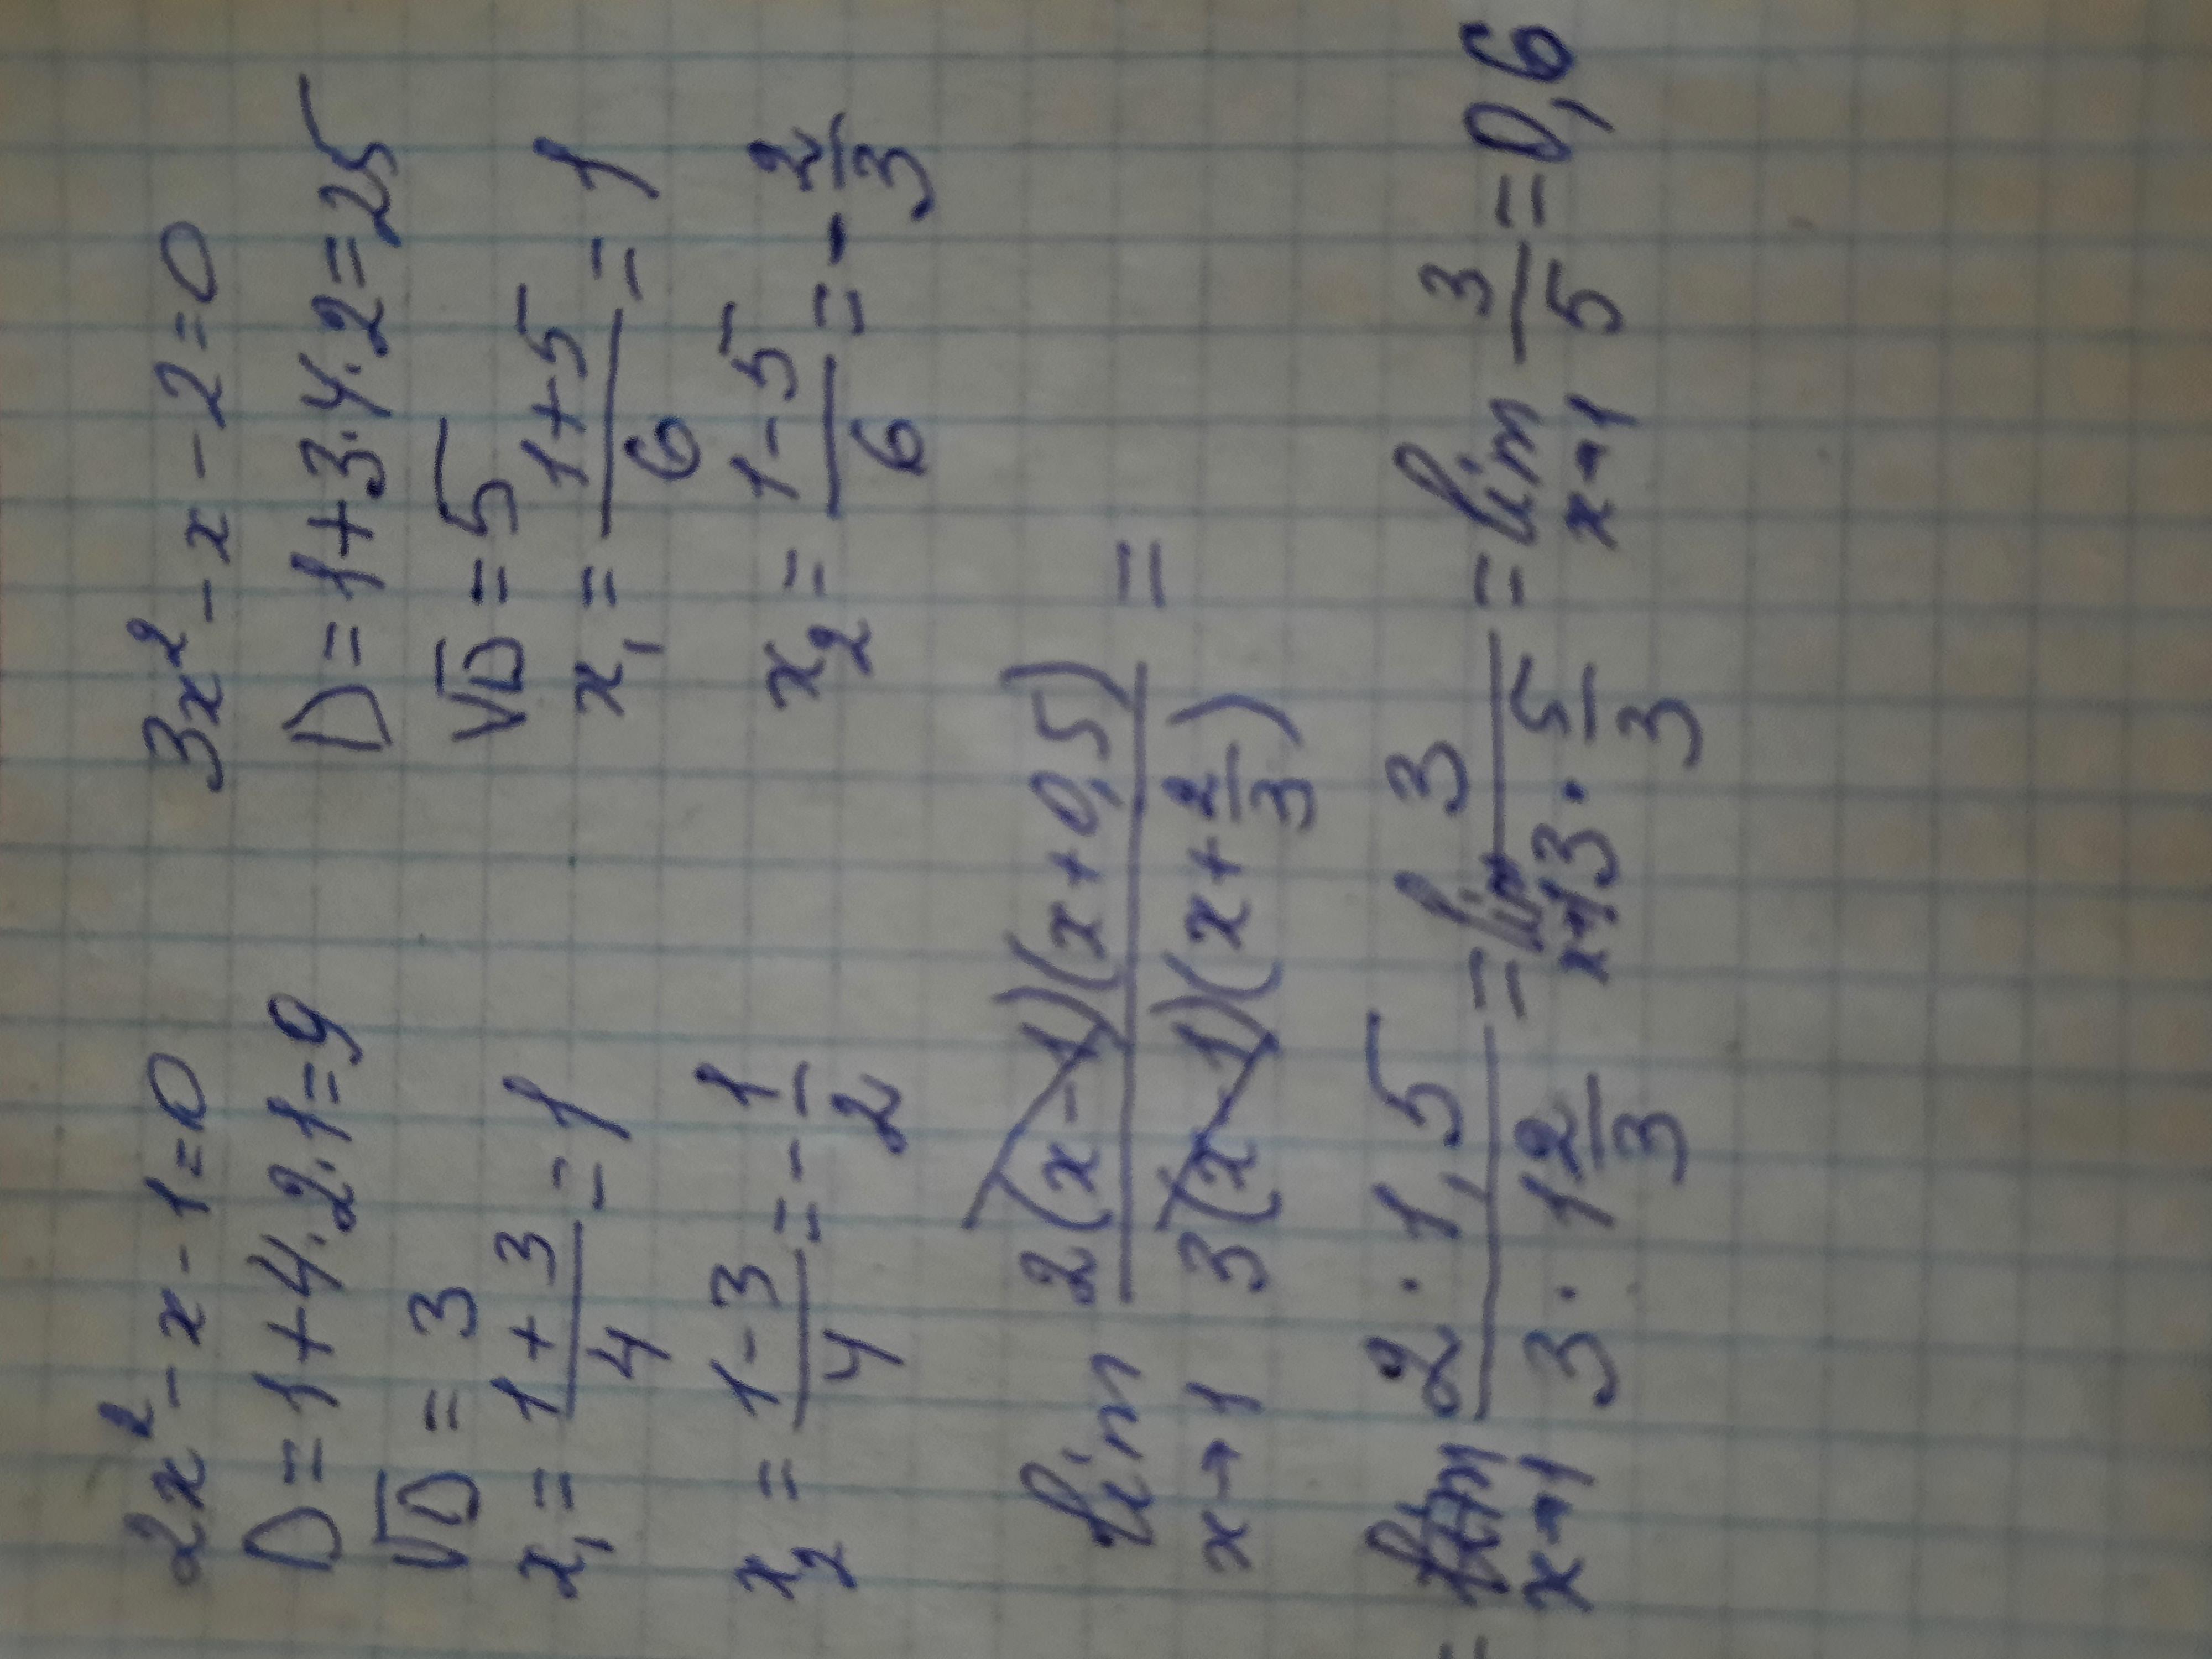 2x² - x - 1 = 0
D = 1 + 4 · 2 · 1 = 9
√D = 3
x₁ = (1 + 3)/4 = 1
x₂ = (1 - 3)/4 = - 1/2
3x² - x - 2 = 0
D = 1 + 3 · 4 · 2 = 25
√D = 5
x₁ = (1 + 5)/6 = 1
x₂ = (1 - 5)/6 = - 2/3
lim x→1 2(x - 1)(x + 0,5) / 3(x - 1)(x + 2/3) =
= lim x→1 (2 · 1,5)/(3 · 1 2/3) = lim x→1 3/(3 · 5/3) = lim x→1 3/5 = 0,6